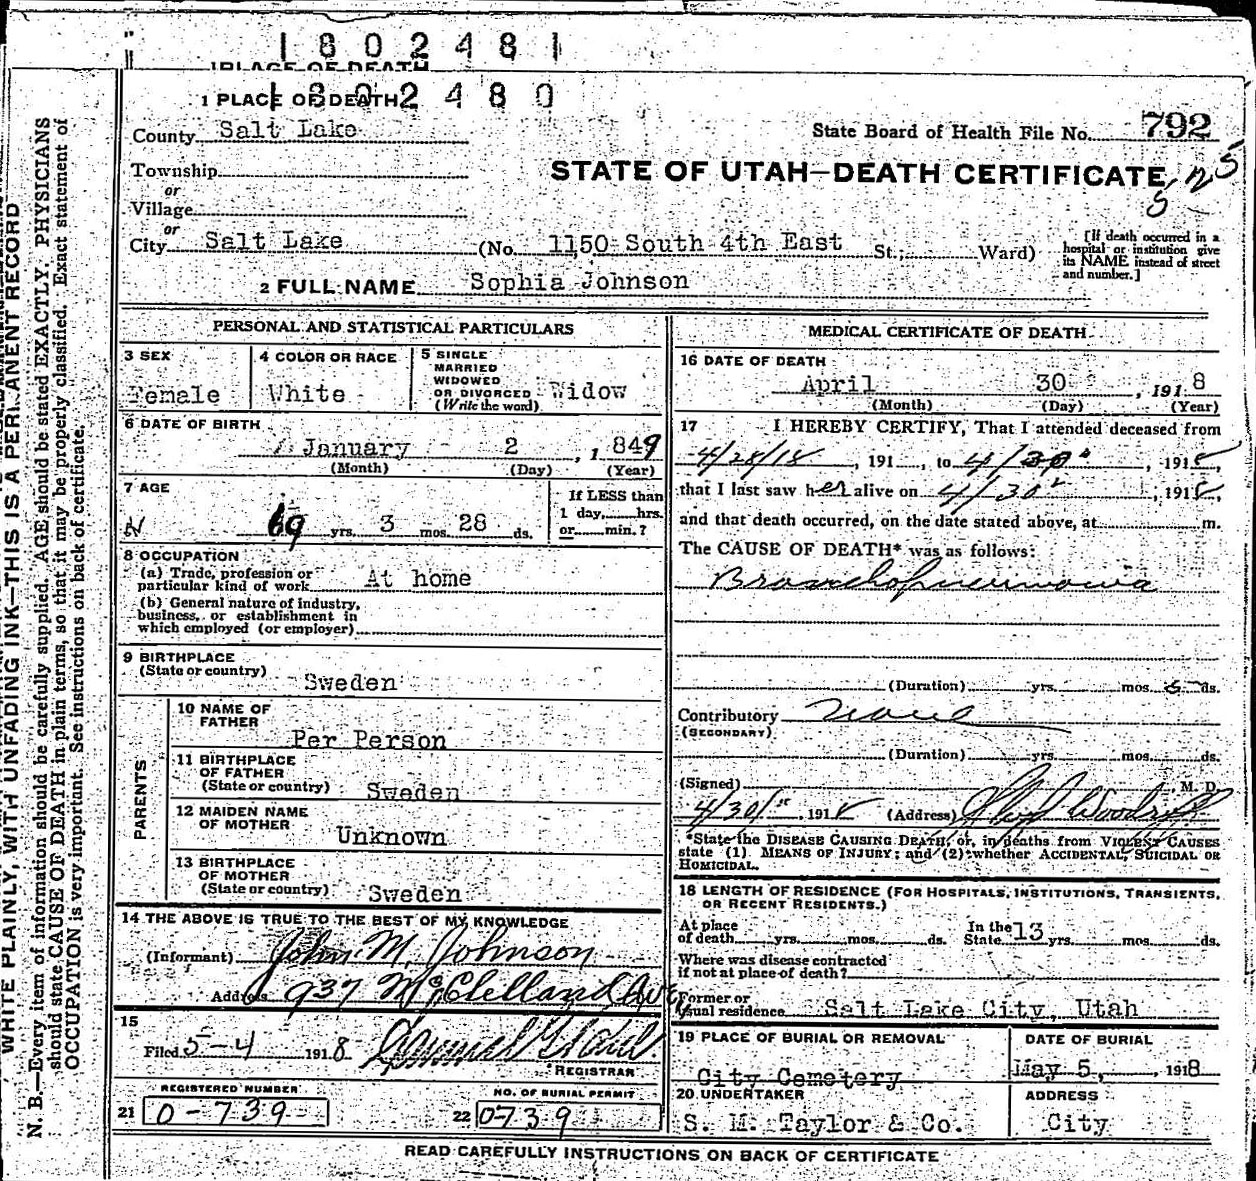 1802481
PLACE OF DEATH
1802480
1 PLACE OF DEATH
County Salt Lake
State Board of Health File No. 792
Township
STATE OF UTAH—DEATH CERTIFICATE
or
Village
or
City Salt Lake (No. 1150 South 4th East St.; Ward)
[If death occurred in a
hospital or institution give
its NAME instead of street
and number.]
2 FULL NAME Sophia Johnson
PERSONAL AND STATISTICAL PARTICULARS
3 SEX
Female
4 COLOR OR RACE
White
5 SINGLE
MARRIED
WIDOWED
OR DIVORCED
(Write the word)
Widow
6 DATE OF BIRTH
January 2, 1849
(Month) (Day) (Year)
7 AGE
69 yrs. 3 mos. 28 ds.
If LESS than
1 day, hrs.
or min.?
8 OCCUPATION
(a) Trade, profession or
particular kind of work At home
(b) General nature of industry,
business, or establishment in
which employed (or employer)
9 BIRTHPLACE
(State or country)
Sweden
PARENTS
10 NAME OF
FATHER
Per Person
11 BIRTHPLACE
OF FATHER
(State or country) Sweden
12 MAIDEN NAME
OF MOTHER
Unknown
13 BIRTHPLACE
OF MOTHER
(State or country) Sweden
14 THE ABOVE IS TRUE TO THE BEST OF MY KNOWLEDGE
(Informant) John M. Johnson
Address 937 McClelland Ave
15
Filed 5-4 1918
REGISTRAR
REGISTERED NUMBER
21 0-739
NO. OF BURIAL PERMIT
22 0739
MEDICAL CERTIFICATE OF DEATH
16 DATE OF DEATH
April 30, 1918
(Month) (Day) (Year)
17 I HEREBY CERTIFY, That I attended deceased from
4/28/18, 191, to 4/30, 1918,
that I last saw her alive on 4/30, 1918,
and that death occurred, on the date stated above, at m.
The CAUSE OF DEATH* was as follows:
Bronchopneumonia
(Duration) yrs. mos. 5 ds.
Contributory none
(SECONDARY)
(Duration) yrs. mos. ds.
(Signed) , M. D.
4/30/18, 1918 (Address)
*State the DISEASE CAUSING DEATH, or, in deaths from VIOLENT CAUSES
state (1) MEANS OF INJURY; and (2) whether ACCIDENTAL, SUICIDAL OR
HOMICIDAL.
18 LENGTH OF RESIDENCE (FOR HOSPITALS, INSTITUTIONS, TRANSIENTS,
OR RECENT RESIDENTS.)
At place
of death yrs. mos. ds.
In the
State 13 yrs. mos. ds.
Where was disease contracted
if not at place of death?
Former or
usual residence Salt Lake City, Utah
19 PLACE OF BURIAL OR REMOVAL
City Cemetery
DATE OF BURIAL
May 5, 1918
20 UNDERTAKER
S. M. Taylor & Co.
ADDRESS
City
READ CAREFULLY INSTRUCTIONS ON BACK OF CERTIFICATE
WRITE PLAINLY, WITH UNFADING INK—THIS IS A PERMANENT RECORD
N. B.—Every item of information should be carefully supplied. AGE should be stated EXACTLY. PHYSICIANS
should state CAUSE OF DEATH in plain terms, so that it may be properly classified. Exact statement of
OCCUPATION is very important. See instructions on back of certificate.